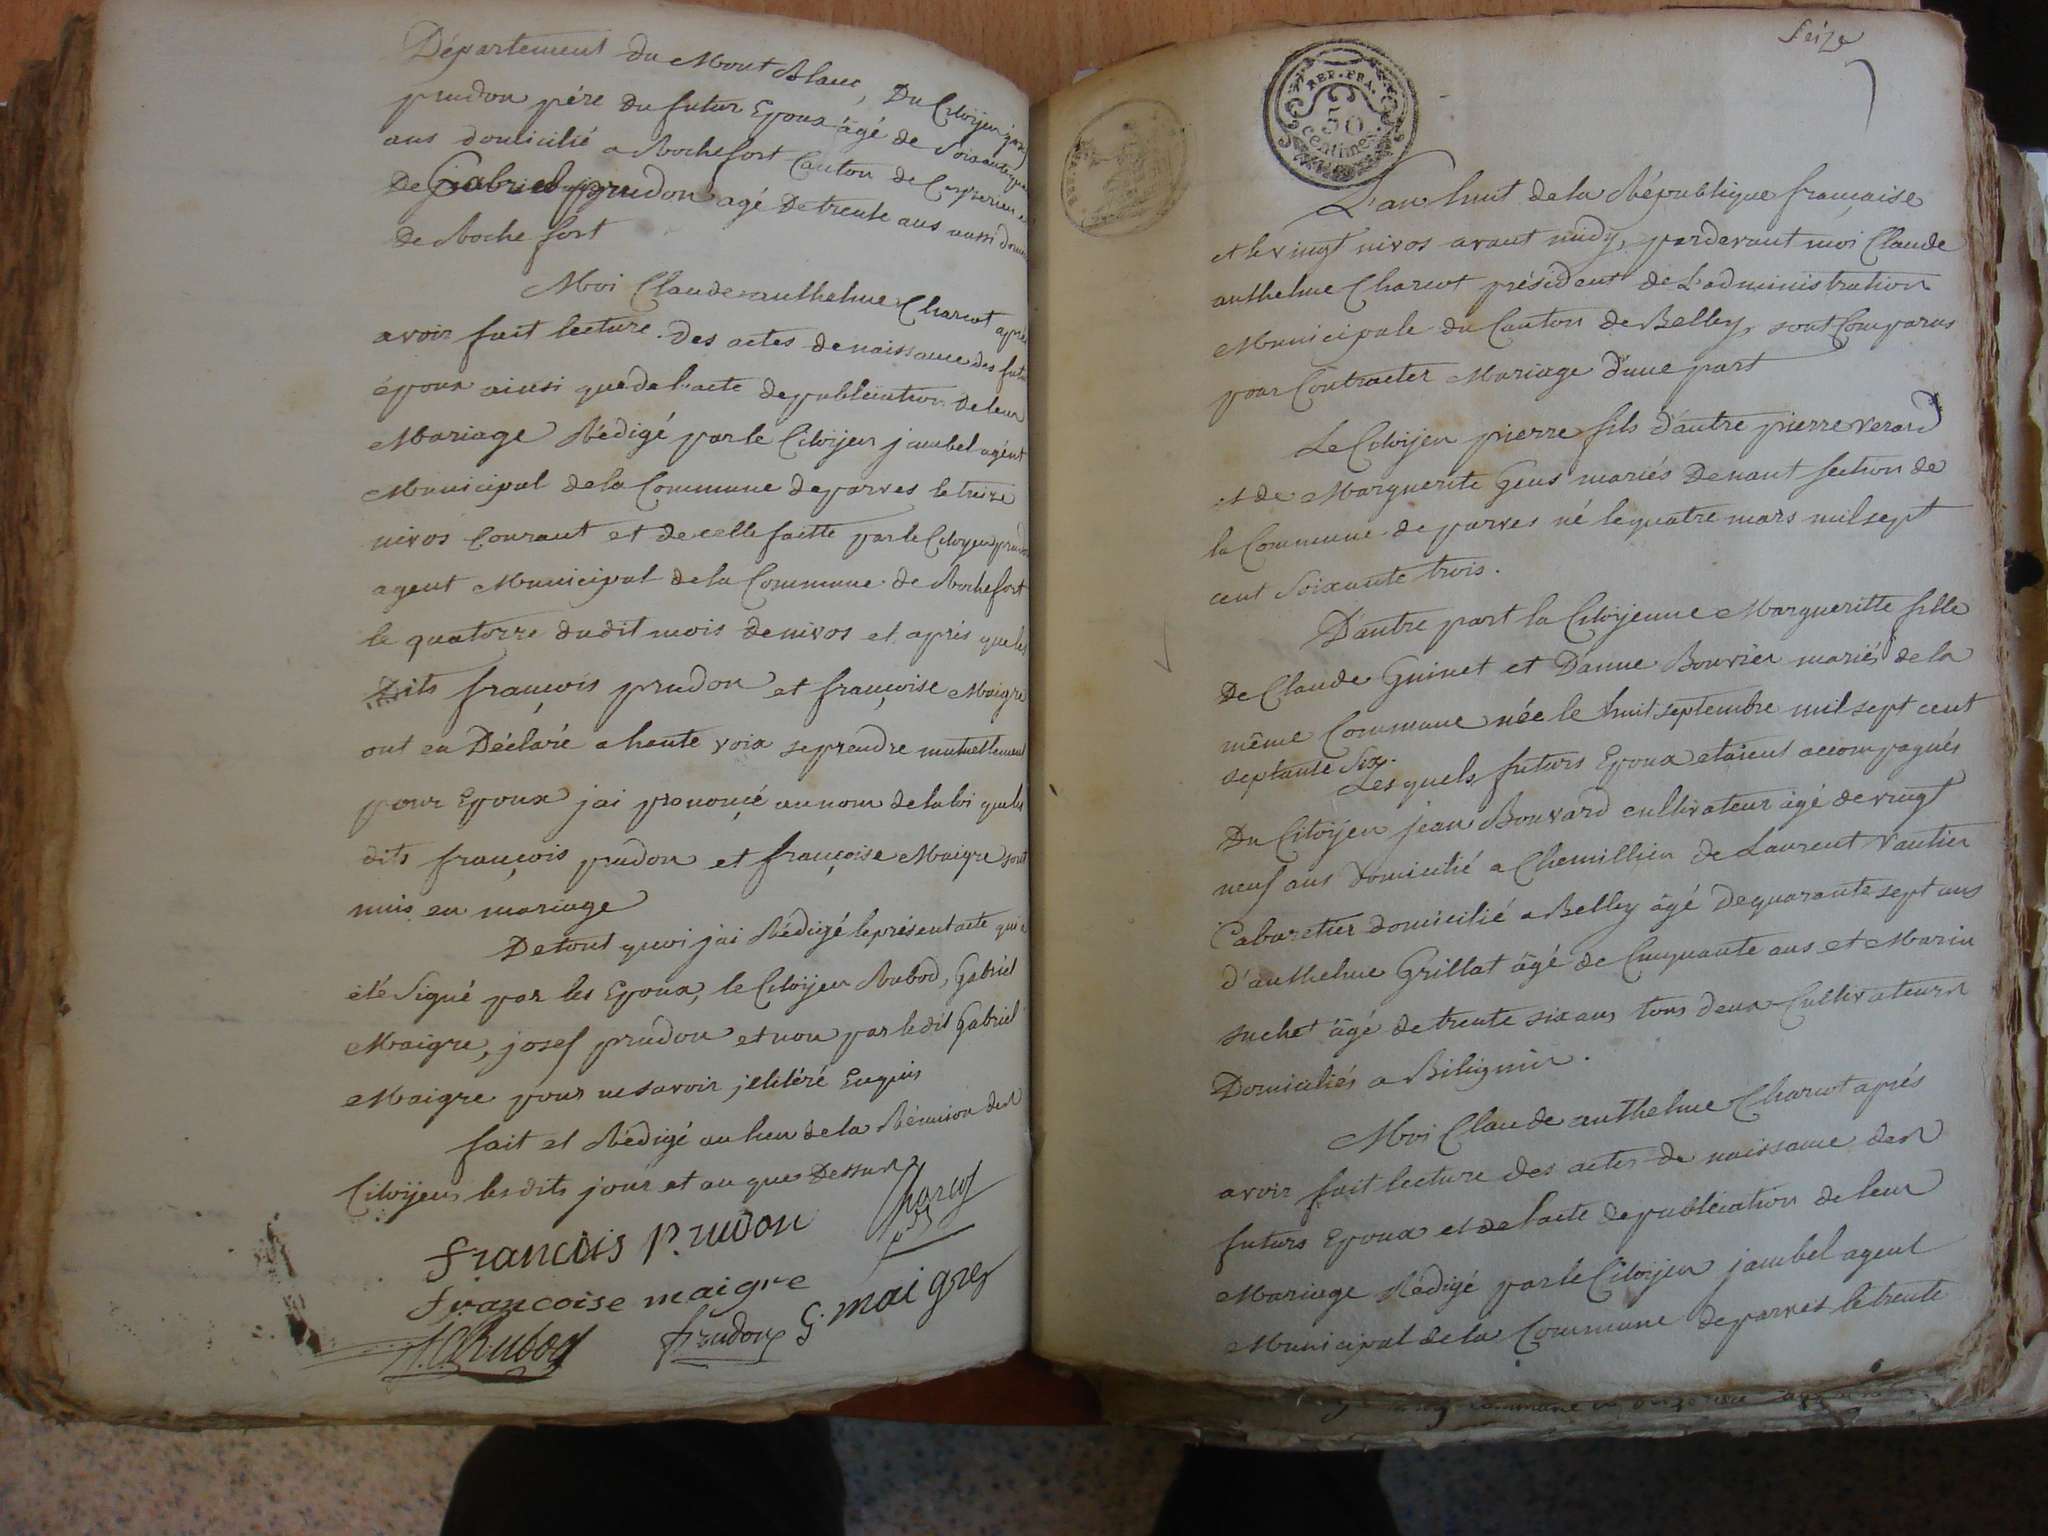 Département du Mont Blanc, Du Citoijen
prudon pére du futur Epoux âgé de Soixante
ans domicilié a Rochefort Canton de
De Gabriel prudon agé De trente ans aussi
de Roche fort
Moi Claude anthelme Charcot aprés
avoir fait lecture des actes de naissance des futurs
époux ainsi que de l'acte de publiciation de leur
Mariage Rédigé par le Citoijen jambel agént
Municipal de la Commune de parves le treize
nivos Courant et de celle faitte par le Citoyen prudon
agent Municipal de la Commune de Rochefort
le quatorze dudit mois de nivos et aprés que les
Dits françois prudon et françoise Maigre
ont eu Déclaré a haute voix se prendre mutuellement
pour Epoux jai prononcé au nom de la loi que les
dits françois prudon et françoise Maigre sont
unis en mariage
De tout quoi j'ai Rédigé le présent acte qui a
été Signé par les Epoux, le Citoijen Rubod, Gabriel
Maigre, josef prudon et non par le dit Gabriel
Maigre pour ne savoir, illitéré Enquis
fait et Rédigé au lieu de la Réunion des
Citoijens les dits jour et an que Dessus
Charcot
françois Prudon
françoise maigre
Rubod prudon G. maigre
Séize
REP. FRA.
50
centimes
L'an huit de la République française
et le vingt nivos avant midy, par devant moi Claude
anthelme Charcot président de L'administration
Municipale du Canton de Belley, sont Comparus
pour Contracter Mariage d'une part
Le Citoijen pierre fils d'autre pierre verard
et de Marguerite Gens mariés de nant section de
la Commune de parves né le quatre mars mil sept
cent Soixante trois.
D'autre part la Citoijenne Margueritte fille
De Claude Guinet et D'anne Bouvier mariés de la
même Commune née le huit septembre mil sept cent
septante Six.
Lesquels futurs Epoux etaient accompagnés
Du Citoijen jean Bouvard cultivateur âgé de vingt
neuf ans Domicilié a Chemillieu de Laurent Vautier
Cabaretier domicilié a Belley âgé de quarante sept ans
d'anthelme Grillat âgé de Cinquante ans et Marin
suchet âgé de trente six ans tous deux Cultivateurs
Domiciliés a Bilignin.
Moi Claude anthelme Charcot aprés
avoir fait lecture des actes de naissance des
futurs Epoux et de l'acte de publiciation de leur
Mariage Rédigé par le Citoijen jambel agent
Municipal de la Commune de parves le trente